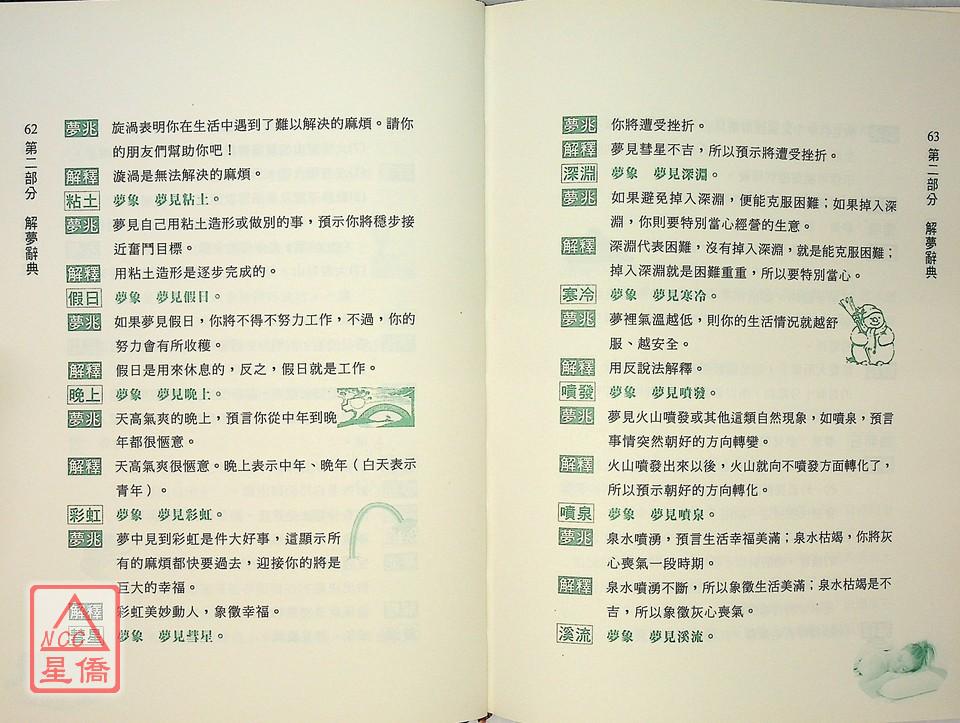 62 第二部分 解夢辭典
夢兆 旋渦表明你在生活中遇到了難以解決的麻煩。請你
的朋友們幫助你吧！
解釋 漩渦是無法解決的麻煩。
粘土 夢象 夢見粘土。
夢兆 夢見自己用粘土造形或做別的事，預示你將穩步接
近奮鬥目標。
解釋 用粘土造形是逐步完成的。
假日 夢象 夢見假日。
夢兆 如果夢見假日，你將不得不努力工作，不過，你的
努力會有所收穫。
解釋 假日是用來休息的，反之，假日就是工作。
晚上 夢象 夢見晚上。
夢兆 天高氣爽的晚上，預言你從中年到晚
年都很愜意。
解釋 天高氣爽很愜意。晚上表示中年、晚年（白天表示
青年）。
彩虹 夢象 夢見彩虹。
夢兆 夢中見到彩虹是件大好事，這顯示所
有的麻煩都快要過去，迎接你的將是
巨大的幸福。
解釋 彩虹美妙動人，象徵幸福。
彗星 夢象 夢見彗星。
NCC
星僑
63 第二部分 解夢辭典
夢兆 你將遭受挫折。
解釋 夢見彗星不吉，所以預示將遭受挫折。
深淵 夢象 夢見深淵。
夢兆 如果避免掉入深淵，便能克服困難；如果掉入深
淵，你則要特別當心經營的生意。
解釋 深淵代表困難，沒有掉入深淵，就是能克服困難；
掉入深淵就是困難重重，所以要特別當心。
寒冷 夢象 夢見寒冷。
夢兆 夢裡氣溫越低，則你的生活情況就越舒
服、越安全。
解釋 用反說法解釋。
噴發 夢象 夢見噴發。
夢兆 夢見火山噴發或其他這類自然現象，如噴泉，預言
事情突然朝好的方向轉變。
解釋 火山噴發出來以後，火山就向不噴發方面轉化了，
所以預示朝好的方向轉化。
噴泉 夢象 夢見噴泉。
夢兆 泉水噴湧，預言生活幸福美滿；泉水枯竭，你將灰
心喪氣一段時期。
解釋 泉水噴湧不斷，所以象徵生活美滿；泉水枯竭是不
吉，所以象徵灰心喪氣。
溪流 夢象 夢見溪流。